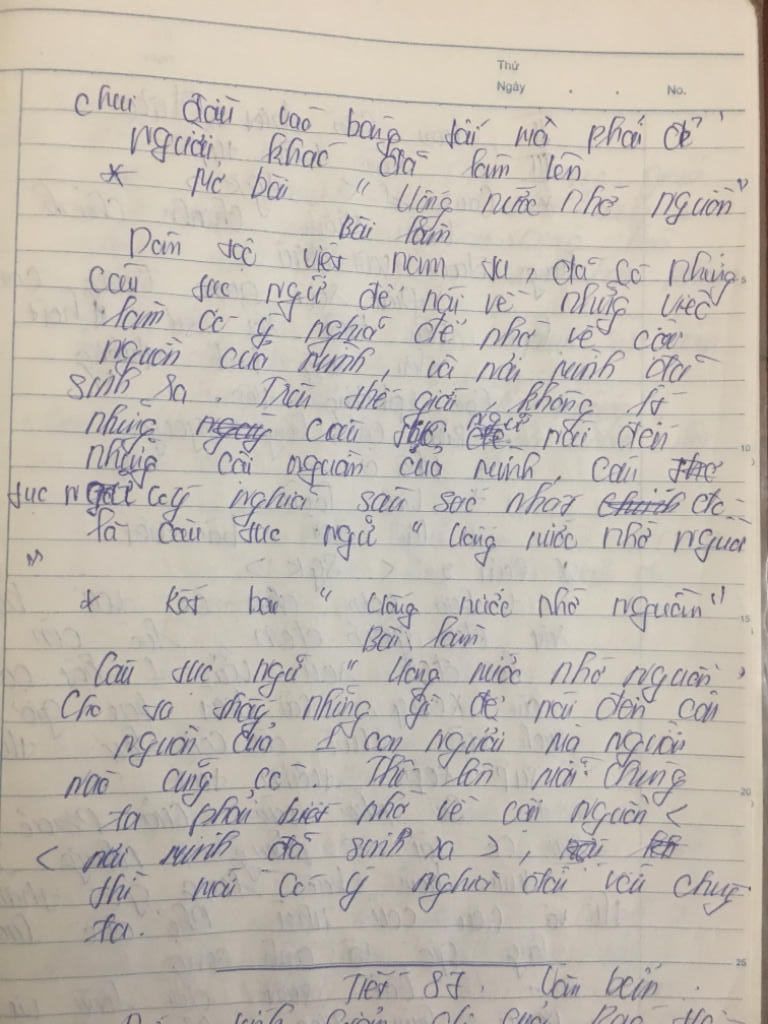 Thứ
Ngày . . No.
chui đầu vào bóng tối mà phải để
người khác đã làm lên
* Mở bài " Uống nước nhớ nguồn "
Bài làm
Dân tộc việt nam ta, đã có những
câu tục ngữ để nói về những việc
làm có ý nghĩa để nhớ về cội
nguồn của mình, và nơi mình đã
sinh ra. Trên thế giới, không ít
những câu tục ngữ nói đến
những cội nguồn của mình, câu
tục ngữ có ý nghĩa sâu sắc nhất đó
là câu tục ngữ " Uống nước nhớ nguồn
"
* Kết bài " Uống nước nhớ nguồn "
Bài làm
Câu tục ngữ " Uống nước nhớ nguồn "
Cho ta thấy những gì để nói đến cội
nguồn của 1 con người mà người
nào cũng có. mỗi chúng
ta phải biết nhớ về cội nguồn <
< nơi mình đã sinh ra >,
thì mới có ý nghĩa đối với chúng
ta.
Tiết 87. Văn bản